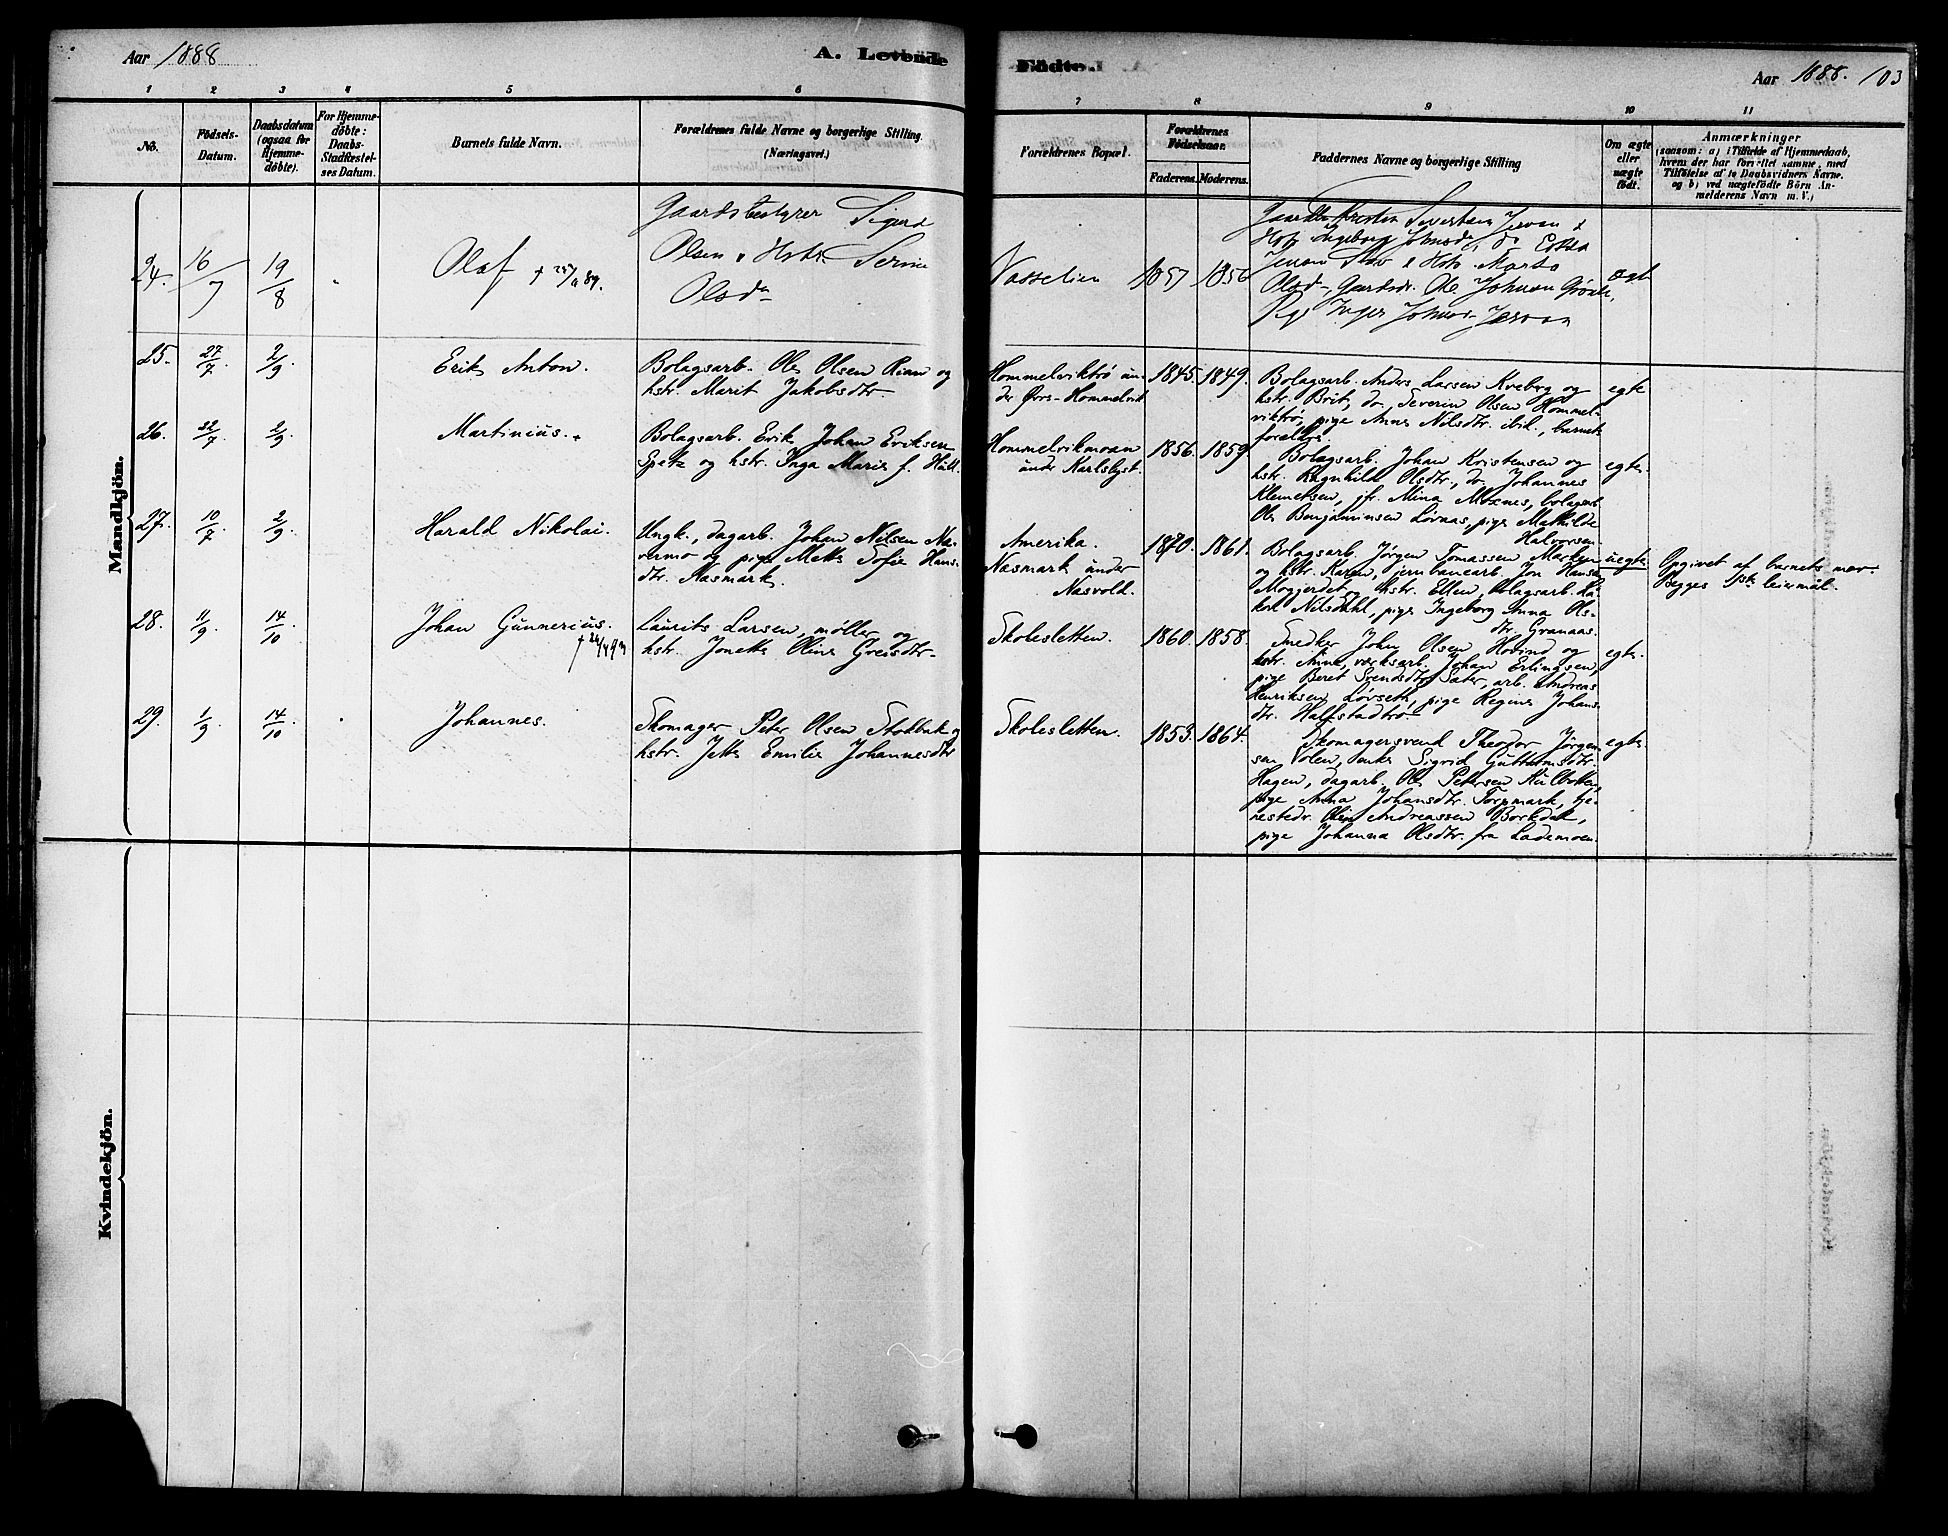 Aar 1888
A. Levende Födte.
Aar 1888. 103
1 2 3 4 5 6 7 8 9 10 11
No.
Födsels-
Datum.
Daabsdatum
(ogsaa for
Hjemme-
döbte).
For Hjemme-
döbte:
Daabs-
Stadfæstel-
ses Datum.
Barnets fulde Navn.
Forældrenes fulde Navne og borgerlige Stilling.
(Næringsvei.)
Forældrenes Bopæl.
Forældrenes
Födselsaar.
Faderens. Moderens.
Faddernes Navne og borgerlige Stilling
Om ægte
eller
uægte
födt.
Anmærkninger
(saasom: a) i Tilfælde af Hjemmedaab,
hvem der har forrettet samme, med
Tilföielse af de Daabsvidners Navne.
og b) ved uægtefödte Börn An-
melderens Navn m. V.)
Mandkjön.
24. 16/7 19/8 " Olaf
Gaardsbestyrer Sigurd
Olsen & Hstr Serine
Olsd
Vasselien 1857 1856
Severtsen Jervan &
Hstr Ingeborg Johnsd
Jervan & Hstr Marta
Olsd Gaardbr. Ole Johnsen
Pige Inger Johnsd Jervan
ægte
25. 27/7 2/9 Erik Anton.
Bolagsarb. Ole Olsen Rian og
hstr. Marit Jakobsdtr
Hommelviktrø un-
der Øvre-Hommelvik
1845. 1849.
Bolagsarb. Anders Larsen Kveberg og
hstr. Brit, do. Severin Olsen Hommel-
viktrø, pige Anne Nilsdtr. ibid., barnets
forældre.
egte
26. 22/7 2/9 Martinius.
Bolagsarb. Erik Johan Eriksen
Spets og hstr. Inga Marie f. Hult.
Hommelvikmoan
under Karlslyst.
1856. 1859
Bolagsarb. Johan Kristensen og
hstr. Ragnhild Olsdtr., do. Johannes
Klemetsen, jfr. Mina Moxnes, bolagsarb.
Ole Benjaminsen Lövaas, pige Mathilde
Halvorsen.
egte.
27. 10/7 2/9 Harald Nikolai.
Ungk., dagarb. Johan Nilsen Na-
vermo og pige Mette Sofie Hans-
dtr. Næsmark.
Amerika.
Næsmark under
Næsvold.
1870. 1861.
Bolagsarb. Jørgen Tomassen Marken
og hstr. Karen, jernbanearb. Jon Hansen
Mogjerdet og hstr. Ellen, bolagsarb. Lu-
Nilsdahl, pige Ingeborg Anna Ols-
dtr. Granaas.
uegte.
Opgivet af barnets mor.
Begges 1ste leiermål.
28. 11/9 14/10 Johan Gunnerius.
Laurits Larsen, møller og
hstr. Jonette Oline Greisdtr.
Skolesletten.
1860. 1858.
Snedker John Olsen Hovind og
hstr. Anne, værksarb. Johan Erlingsen,
pige Beret Svendsdtr. Sæter, arb. Andreas
Henriksen Lövseth, pige Regine Johans-
dtr. Halstadtrø.
egte.
29. 1/9 14/10 Johannes.
Skomager Peter Olsen Stokbak og
hstr. Jette Emilie Johannesdtr
Skolesletten.
1853. 1864.
Skomagersvend Theodor Jörgen-
sen Volen, enke Sigrid Guttormsdtr.
Hagen, dagarb. Ole Petersen Kulbotten,
pige Anna Johansdtr. Torpmark, tje-
nestedr. Olin Andreassen Borkdal,
pige Johanna Olsdtr. fra Lademoen.
egte.
Kvindekjön.